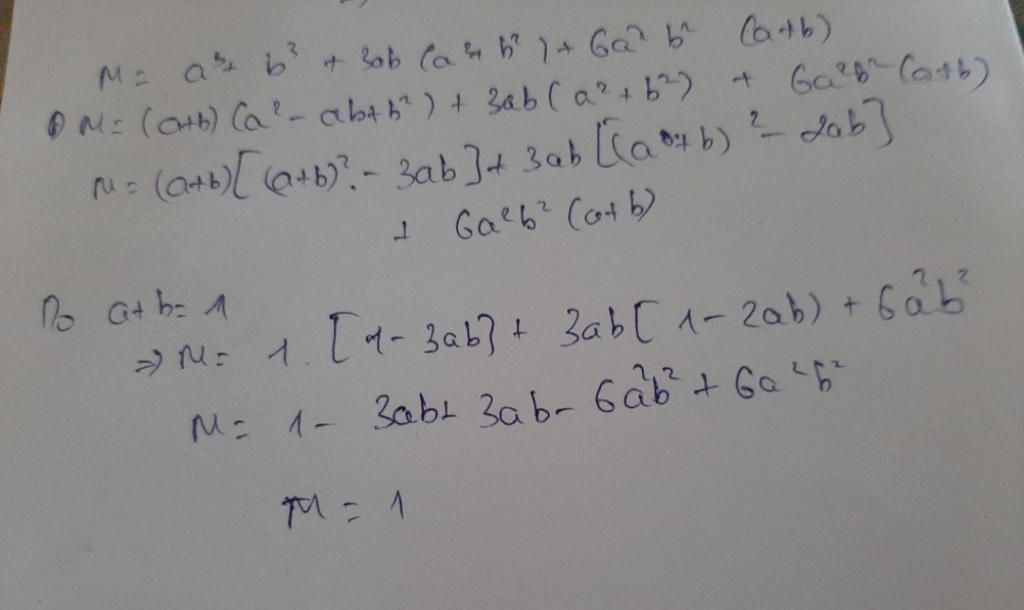 M = a³ + b³ + 3ab (a² + b²) + 6a² b² (a+b)
M = (a+b) (a² - ab + b²) + 3ab (a² + b²) + 6a²b² (a+b)
M = (a+b) [(a+b)² - 3ab] + 3ab [(a+b)² - 2ab]
+ 6a²b² (a+b)
Do a+b = 1
⇒ M = 1. [1 - 3ab] + 3ab [1 - 2ab) + 6a²b²
M = 1 - 3ab + 3ab - 6a²b² + 6a²b²
M = 1